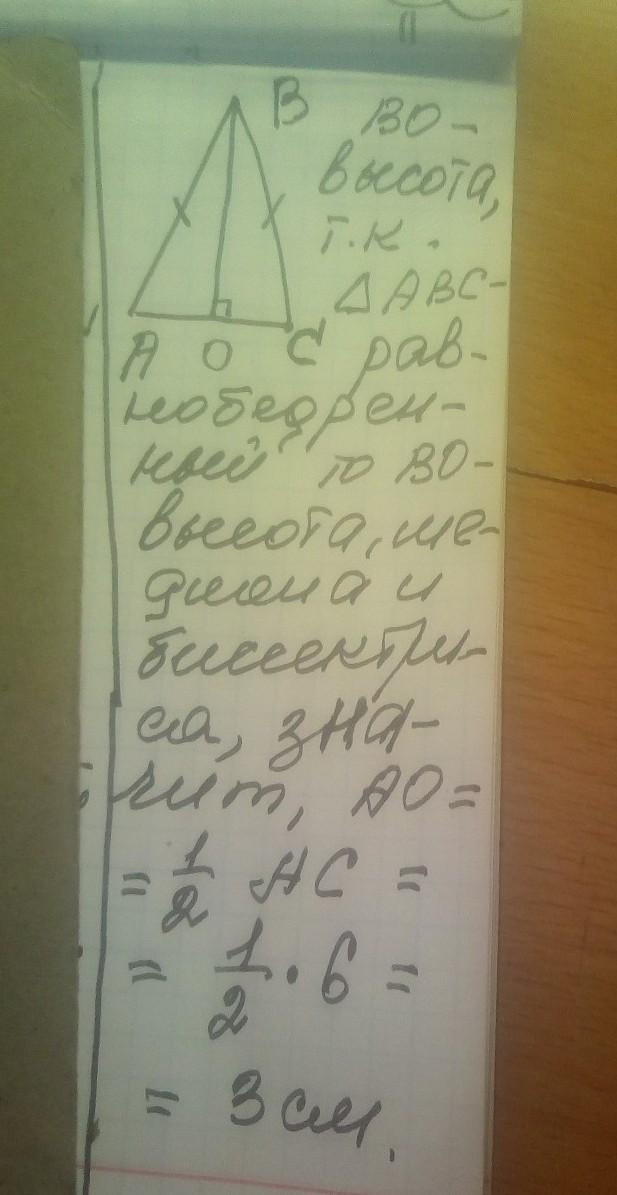 B
BO -
высота,
т.к.
△ABC -
A O C рав-
нобедрен-
ный то BO -
высота, ме-
диана и
биссектри-
са, зна-
чит, AO =
= 1/2 AC =
= 1/2 · 6 =
= 3 см.